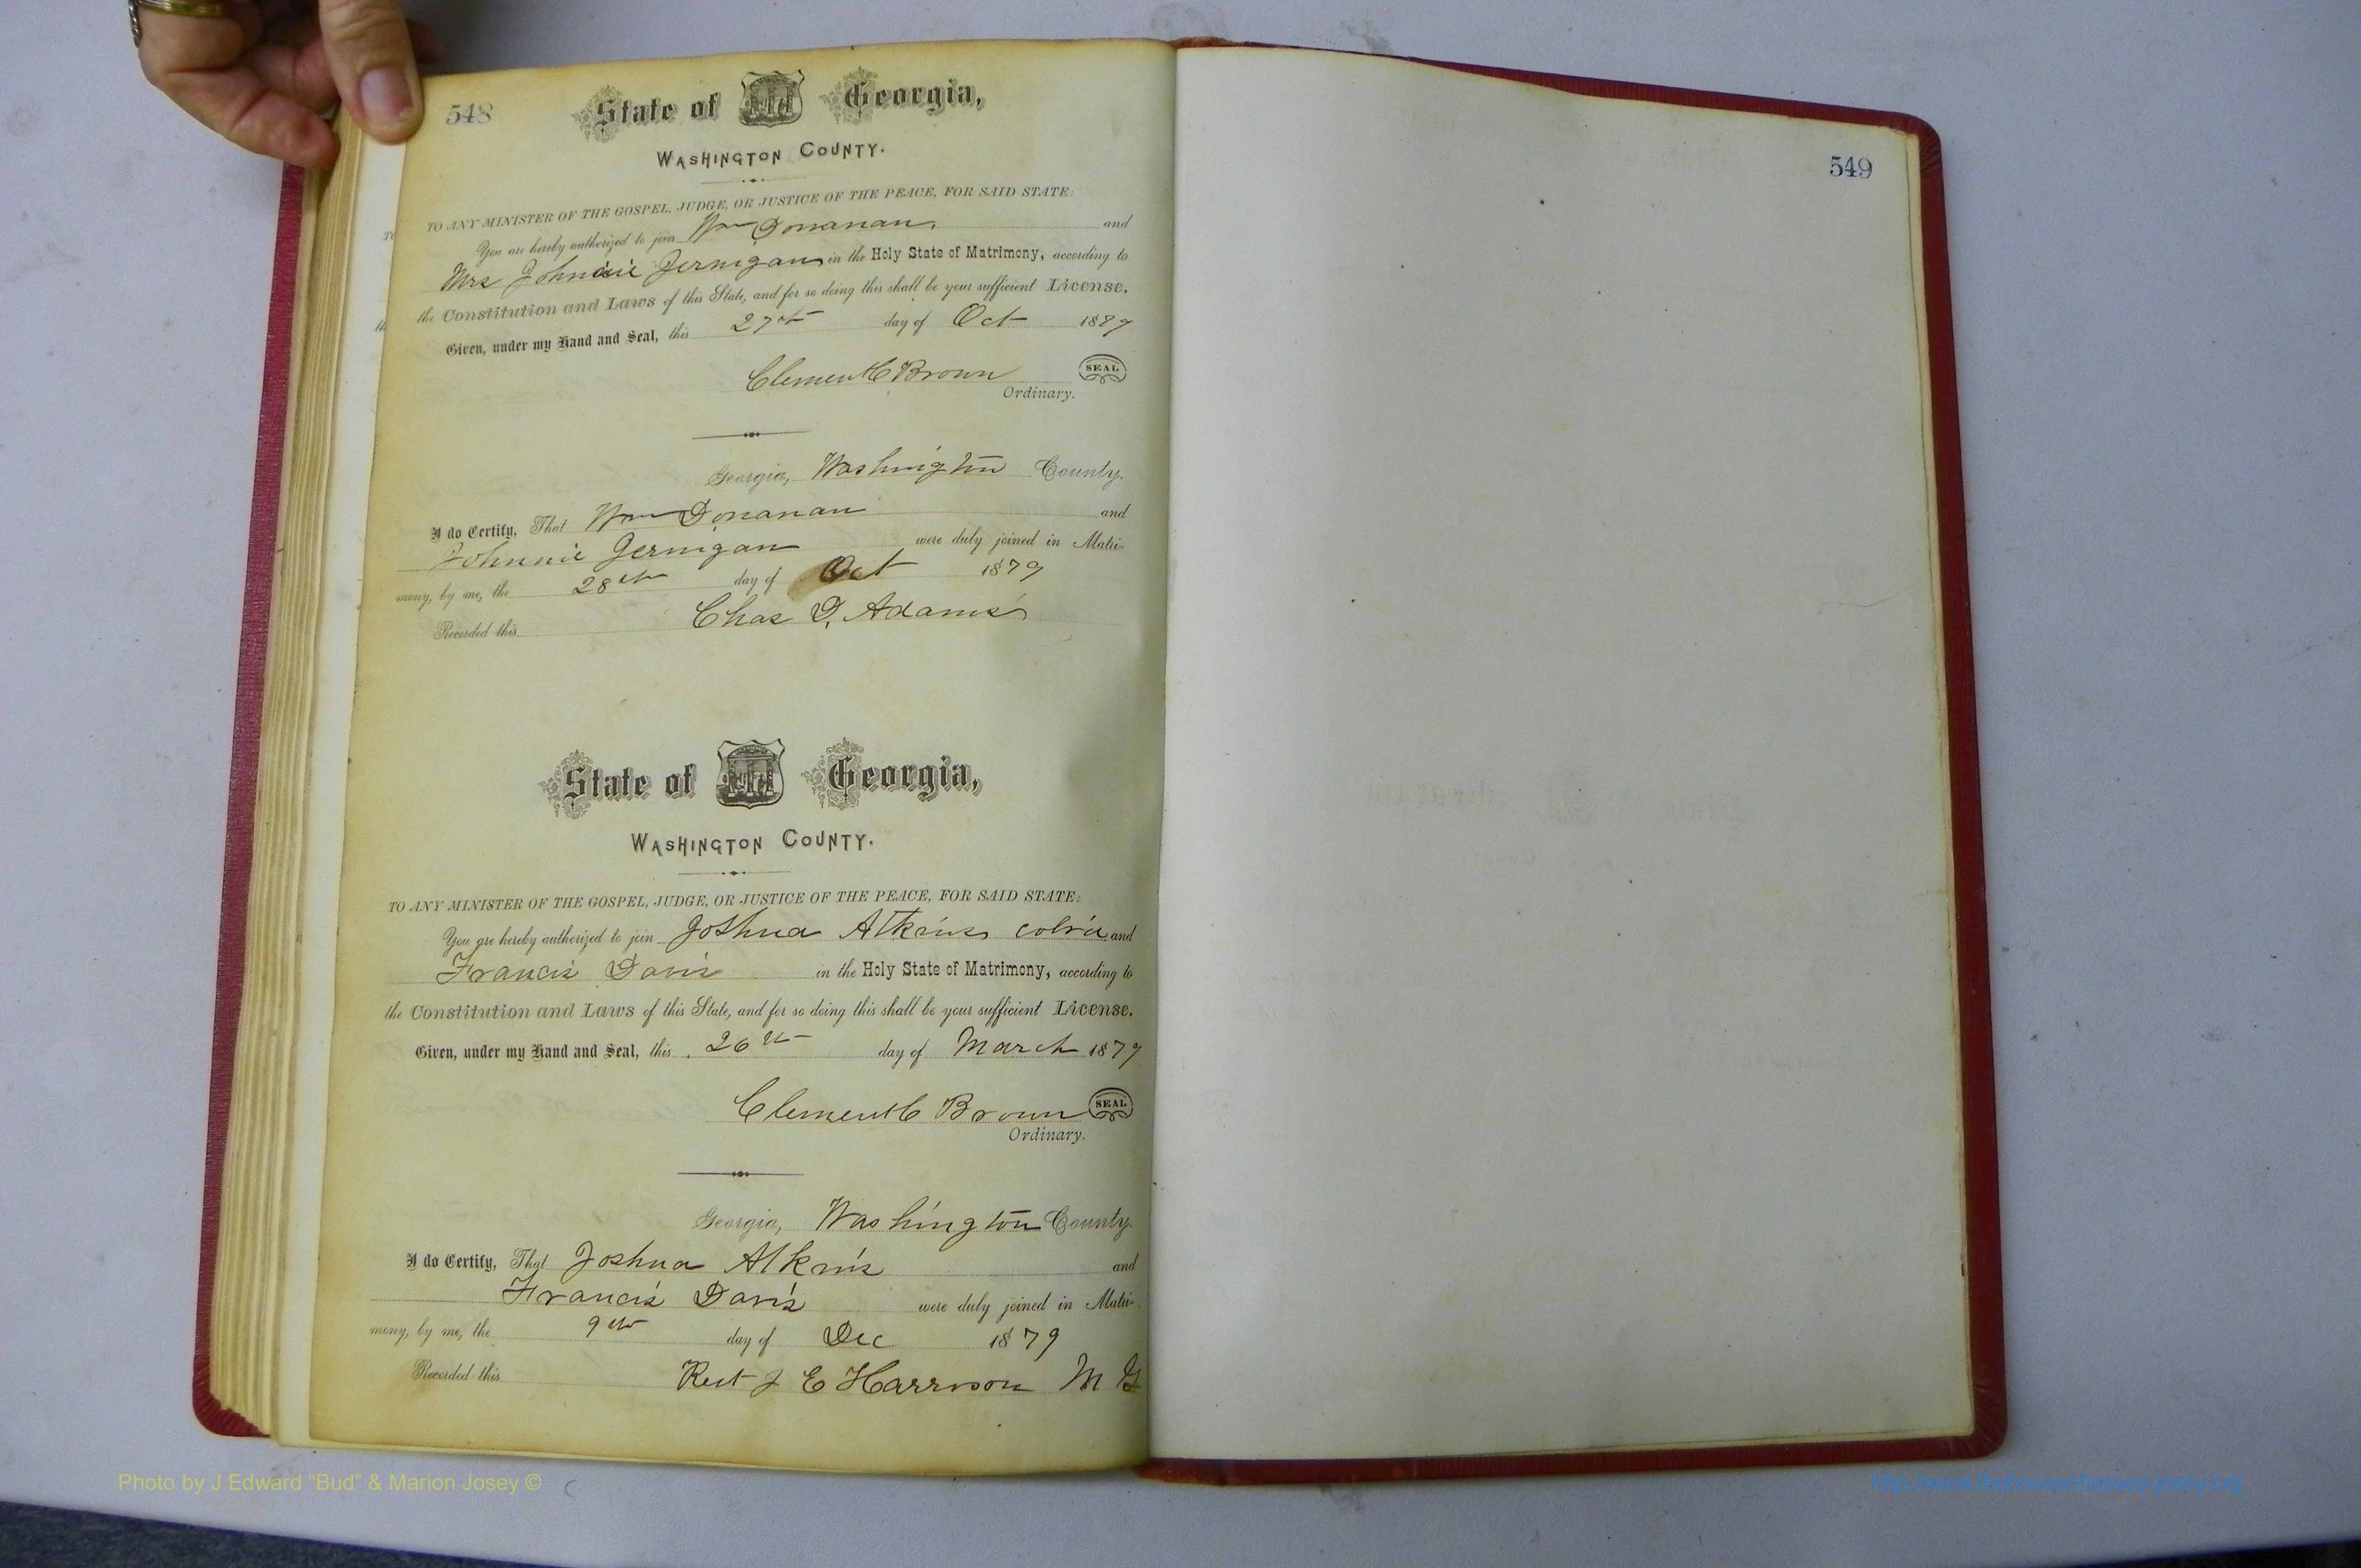 548
State of Georgia,
WASHINGTON COUNTY.
TO ANY MINISTER OF THE GOSPEL, JUDGE, OR JUSTICE OF THE PEACE, FOR SAID STATE:
You are hereby authorized to join Wm Donanan. and
Mrs Johnnie Jernigan in the Holy State of Matrimony, according to
the Constitution and Laws of this State, and for so doing this shall be your sufficient License.
Given, under my Hand and Seal, this 27th day of Oct 1879
Clement C Brown SEAL
Ordinary.
Georgia, Washington County.
I do Certify, That Wm Donanan and
Johnnie Jernigan were duly joined in Matri-
mony, by me, the 28th day of Oct 1879
Chas D. Adams
Recorded this
State of Georgia,
WASHINGTON COUNTY.
TO ANY MINISTER OF THE GOSPEL, JUDGE, OR JUSTICE OF THE PEACE, FOR SAID STATE:
You are hereby authorized to join Joshua Atkins col'rd and
Francis Davis in the Holy State of Matrimony, according to
the Constitution and Laws of this State, and for so doing this shall be your sufficient License.
Given, under my Hand and Seal, this 26th day of March 1879
Clement C Brown SEAL
Ordinary.
Georgia, Washington County.
I do Certify, That Joshua Atkins and
Francis Davis were duly joined in Matri-
mony, by me, the 9th day of Dec 1879
Recorded this J E Harrison M G
549
Photo by J Edward "Bud" & Marion Josey ©